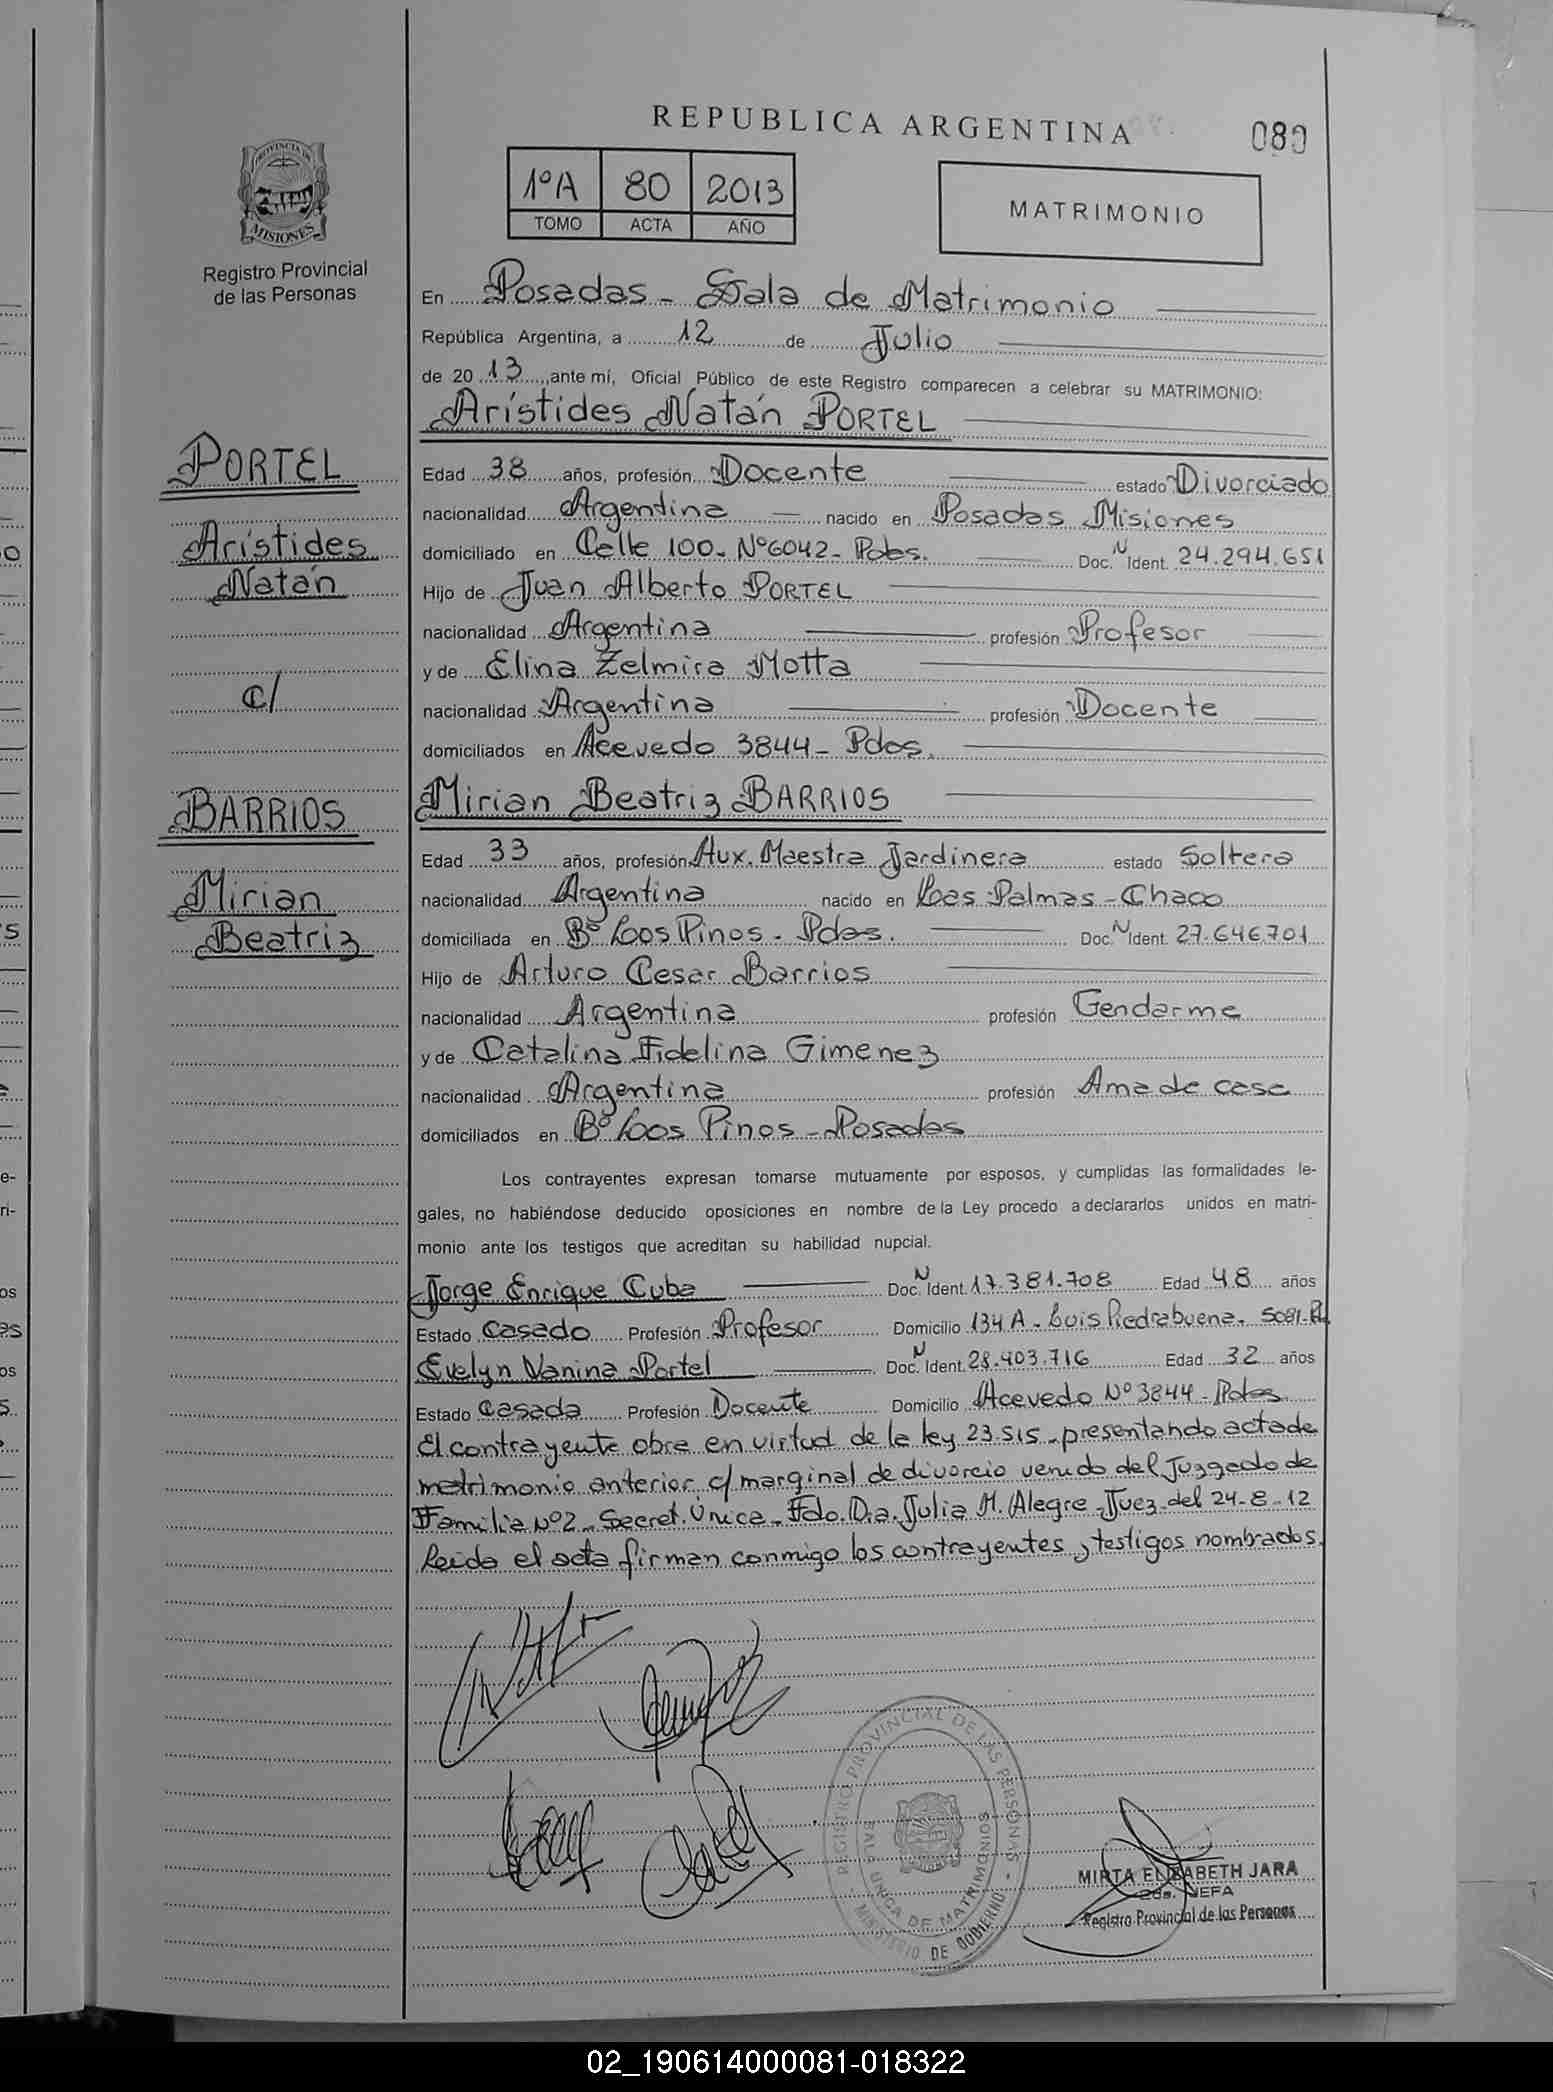 REPUBLICA ARGENTINA
080
1ºA 80 2013
TOMO ACTA AÑO
MATRIMONIO
PROVINCIA DE
MISIONES
Registro Provincial
de las Personas
En Posadas - Sala de Matrimonio
República Argentina, a 12 de Julio
de 20 13, ante mí, Oficial Público de este Registro comparecen a celebrar su MATRIMONIO:
Arístides Natán PORTEL
PORTEL
Arístides
Natán
c/
BARRIOS
Mirian
Beatriz
Edad 38 años, profesión Docente estado Divorciado
nacionalidad Argentina nacido en Posadas Misiones
domiciliado en Calle 100- Nº6042- Pdas. Doc. N Ident. 24.294.651
Hijo de Juan Alberto PORTEL
nacionalidad Argentina profesión Profesor
y de Elina Zelmira Motta
nacionalidad Argentina profesión Docente
domiciliados en Acevedo 3844- Pdas.
Mirian Beatriz BARRIOS
Edad 33 años, profesión Aux. Maestra Jardinera estado Soltera
nacionalidad Argentina nacido en Las Palmas - Chaco
domiciliada en Bº Los Pinos - Pdas. Doc. N Ident. 27.646.701
Hijo de Arturo Cesar Barrios
nacionalidad Argentina profesión Gendarme
y de Catalina Fidelina Gimenez
nacionalidad Argentina profesión Ama de casa
domiciliados en Bº Los Pinos - Posadas
Los contrayentes expresan tomarse mutuamente por esposos, y cumplidas las formalidades le-
gales, no habiéndose deducido oposiciones en nombre de la Ley procedo a declararlos unidos en matri-
monio ante los testigos que acreditan su habilidad nupcial.
Jorge Enrique Cuba Doc. N Ident. 17.381.708 Edad 48 años
Estado Casado Profesión Profesor Domicilio 134 A - Luis Piedrabuena - 5081-
Evelyn Vanina Portel Doc. N Ident. 28.403.716 Edad 32 años
Estado Casada Profesión Docente Domicilio Acevedo Nº 3844 - Pdas
El contrayente obra en virtud de la ley 23.515 - presentando acta de
matrimonio anterior c/ marginal de divorcio venido del Juzgado de
Familia Nº2 - Secret. Única - Fdo. Dra. Julia M. Alegre - Juez - del 24-8-12
Leida el acta firman conmigo los contrayentes, testigos nombrados.
REGISTRO PROVINCIAL DE LAS PERSONAS
SALA UNICA DE MATRIMONIOS
MINISTERIO DE GOBIERNO
MIRTA ELIZABETH JARA
2da. JEFA
Registro Provincial de las Personas
02_190614000081-018322